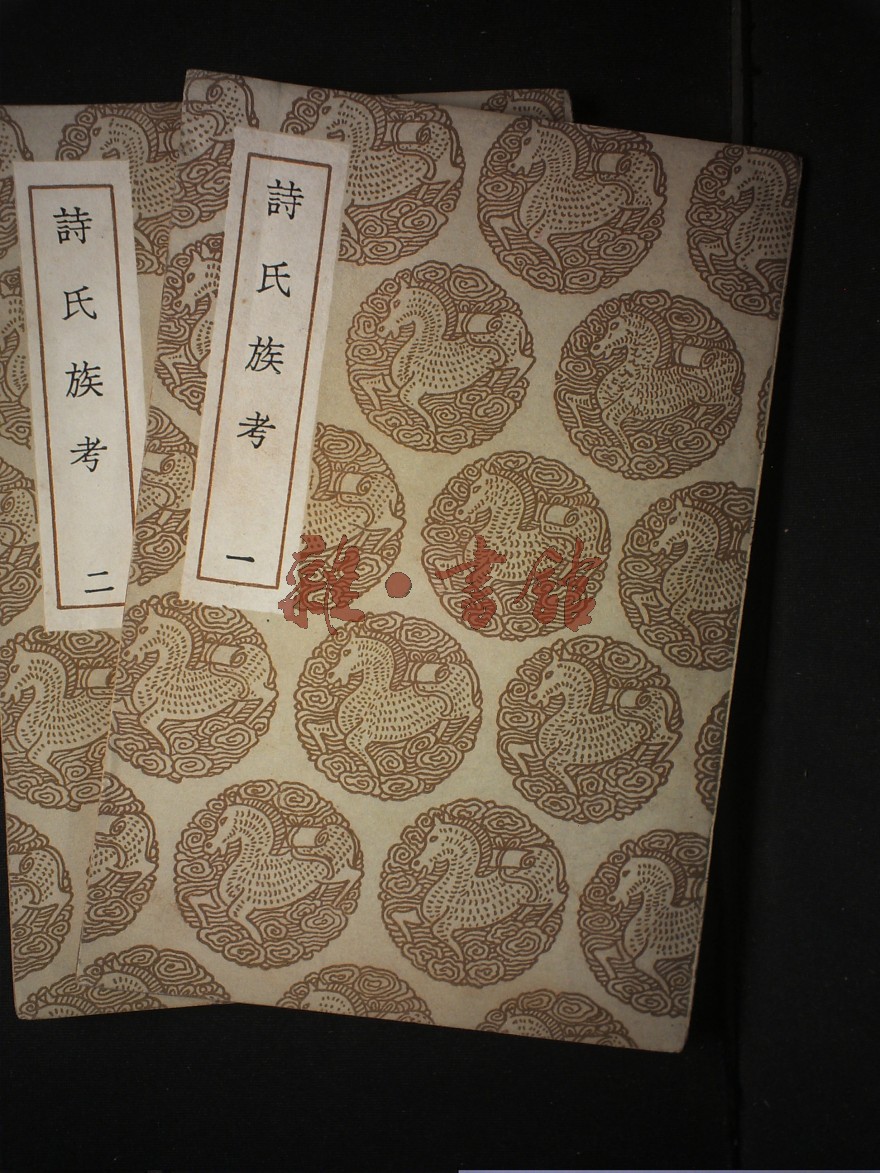 詩氏族考 一
詩氏族考 二
雜·書館